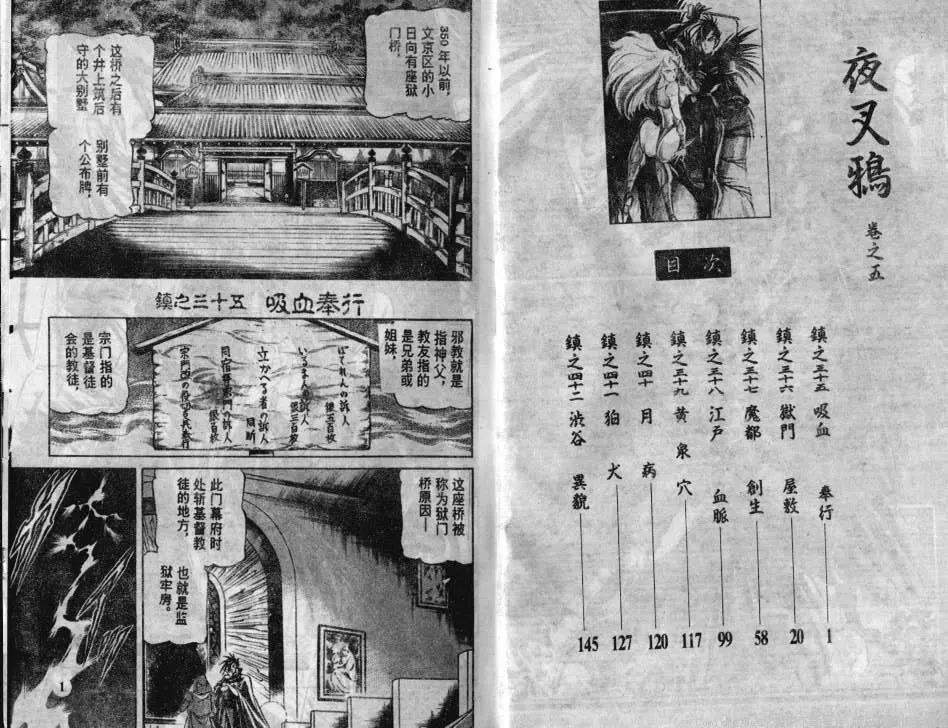 夜叉鴉
卷之五
目次
鎮之三十五 吸血奉行 1
鎮之三十六 獄門屋敷 20
鎮之三十七 魔都創生 58
鎮之三十八 江戸血脈 99
鎮之三十九 黄泉穴 117
鎮之四十 月病 120
鎮之四十一 狛犬 127
鎮之四十二 渋谷異貌 145
350年以前,
文京区的小
日向有座獄
门桥。
这桥之后有
个井上筑后
守的大别墅
别墅前有
个公布牌,
鎮之三十五 吸血奉行
邪教就是
指神父,
教友指的
是兄弟或
姐妹,
ばてれん人の訴人
銀五百枚
いるまん人の訴人
銀三百枚
立かへり者の訴人
同断
同宿并宗門の訴人
銀百枚
宗门指的
是基督徒
会的教徒,
这座桥被
称为獄门
桥原因—
此门幕府时
处斩基督教
徒的地方,
也就是监
獄牢房。
1